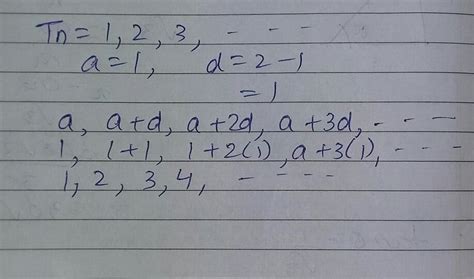 Tn = 1, 2, 3, - - -
a = 1, d = 2 - 1
= 1
a, a+d, a+2d, a+3d, - - - -
1, 1+1, 1+2(1), a+3(1), - - -
1, 2, 3, 4, - - - -